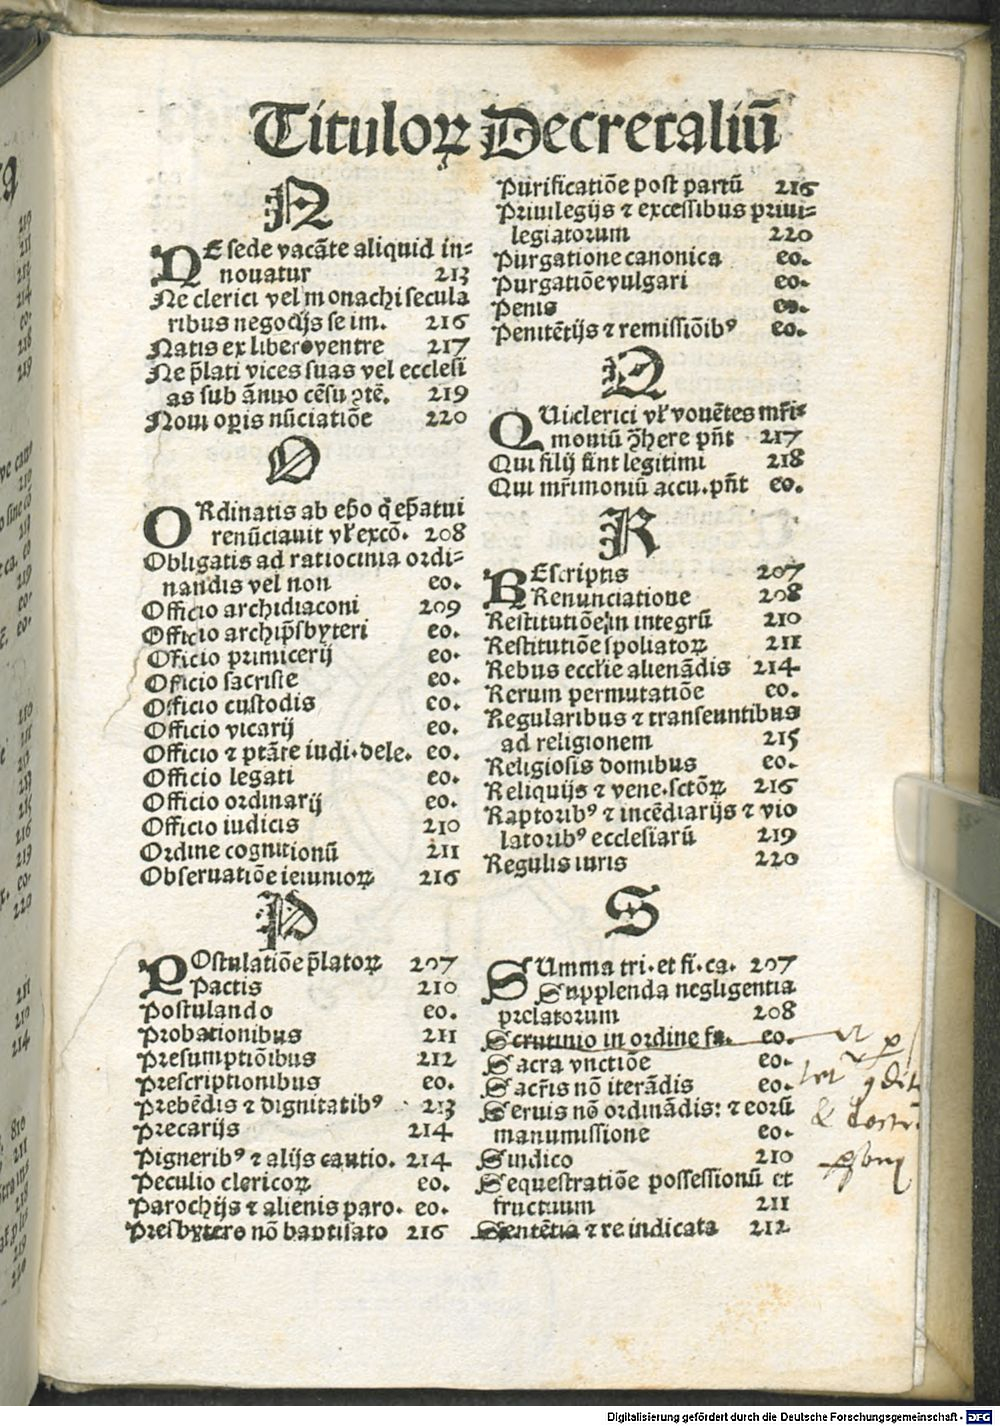 Tituloꝝ Decretaliū
N
NE sede vacāte aliquid in⸗
nouatur 213
Ne clerici vel monachi secula
ribus negocijs se im. 216
Natis ex libero ventre 217
Ne p̄lati vices suas vel ecclesi
as sub ānuo cēsu ꝯtē. 219
Noui oꝑis nūciatiōe 220
O
ORdinatis ab ep̄o q̇ ep̄atui
renūciauit vl̕ excō. 208
Obligatis ad ratiocinia ordi⸗
nandis vel non eo.
Officio archidiaconi 209
Officio archip̄sbyteri eo.
Officio primicerij eo.
Officio sacriste eo.
Officio custodis eo.
Officio vicarij eo.
Officio ⁊ ptāte iudi. dele. eo.
Officio legati eo.
Officio ordinarij eo.
Officio iudicis 210
Ordine cognitionū 211
Obseruatiōe ieiunioꝝ 216
P
POstulatiōe p̄latoꝝ 207
Pactis 210
Postulando eo.
Probationibus 211
Presumptiōibus 212
Prescriptionibus eo.
Prebēdis ⁊ dignitatibꝰ 213
Precarijs 214
Pigneribꝰ ⁊ alijs cautio. 214
Peculio clericoꝝ eo.
Parochijs ⁊ alienis paro. eo.
Presbytero nō baptisato 216
Purificatiōe post partū 216
Priuilegijs ⁊ excessibus priui⸗
legiatorum 220
Purgatione canonica eo.
Purgatiōe vulgari eo.
Penis eo.
Penitētijs ⁊ remissiōibꝰ eo.
Q
QUi clerici vl̕ vouētes mr̄i⸗
moniū ꝯ̄here pn̄t 217
Qui filij sint legitimi 218
Qui mr̄imoniū accu. pn̄t eo.
R
REscriptis 207
Renunciatione 208
Restitutiōe in integrū 210
Restitutiōe spoliatoꝝ 211
Rebus eccl̕ie alienādis 214
Rerum permutatiōe eo.
Regularibus ⁊ transeuntibus
ad religionem 215
Religiosis domibus eo.
Reliquijs ⁊ vene. sctōꝝ 216
Raptoribꝰ ⁊ incēdiarijs ⁊ vio
latoribꝰ ecclesiarū 219
Regulis iuris 220
S
SUmma tri. et fi. ca. 207
Supplenda negligentia
prelatorum 208
Scrutinio in ordine fa. eo.
Sacra vnctiōe eo.
Sacr̄is nō iterādis eo.
Seruis nō ordinādis: ⁊ eorū
manumissione eo.
Sindico 210
Sequestratiōe possessionū et
fructuum 211
Sentētia ⁊ re iudicata 212
Digitalisierung gefördert durch die Deutsche Forschungsgemeinschaft - DFG